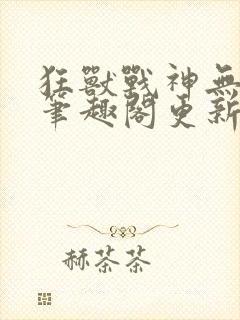 狂獸戰神無
筆趣閣更新
赫茶茶